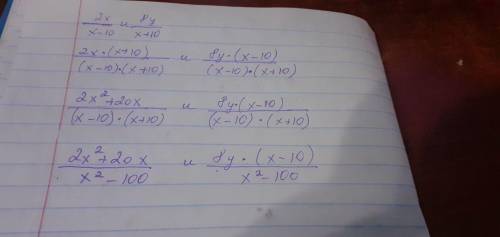 2x/x-10 и 8y/x+10
2x·(x+10)/(x-10)·(x+10) и 8y·(x-10)/(x-10)·(x+10)
2x²+20x/(x-10)·(x+10) и 8y·(x-10)/(x-10)·(x+10)
2x²+20x/x²-100 и 8y·(x-10)/x²-100